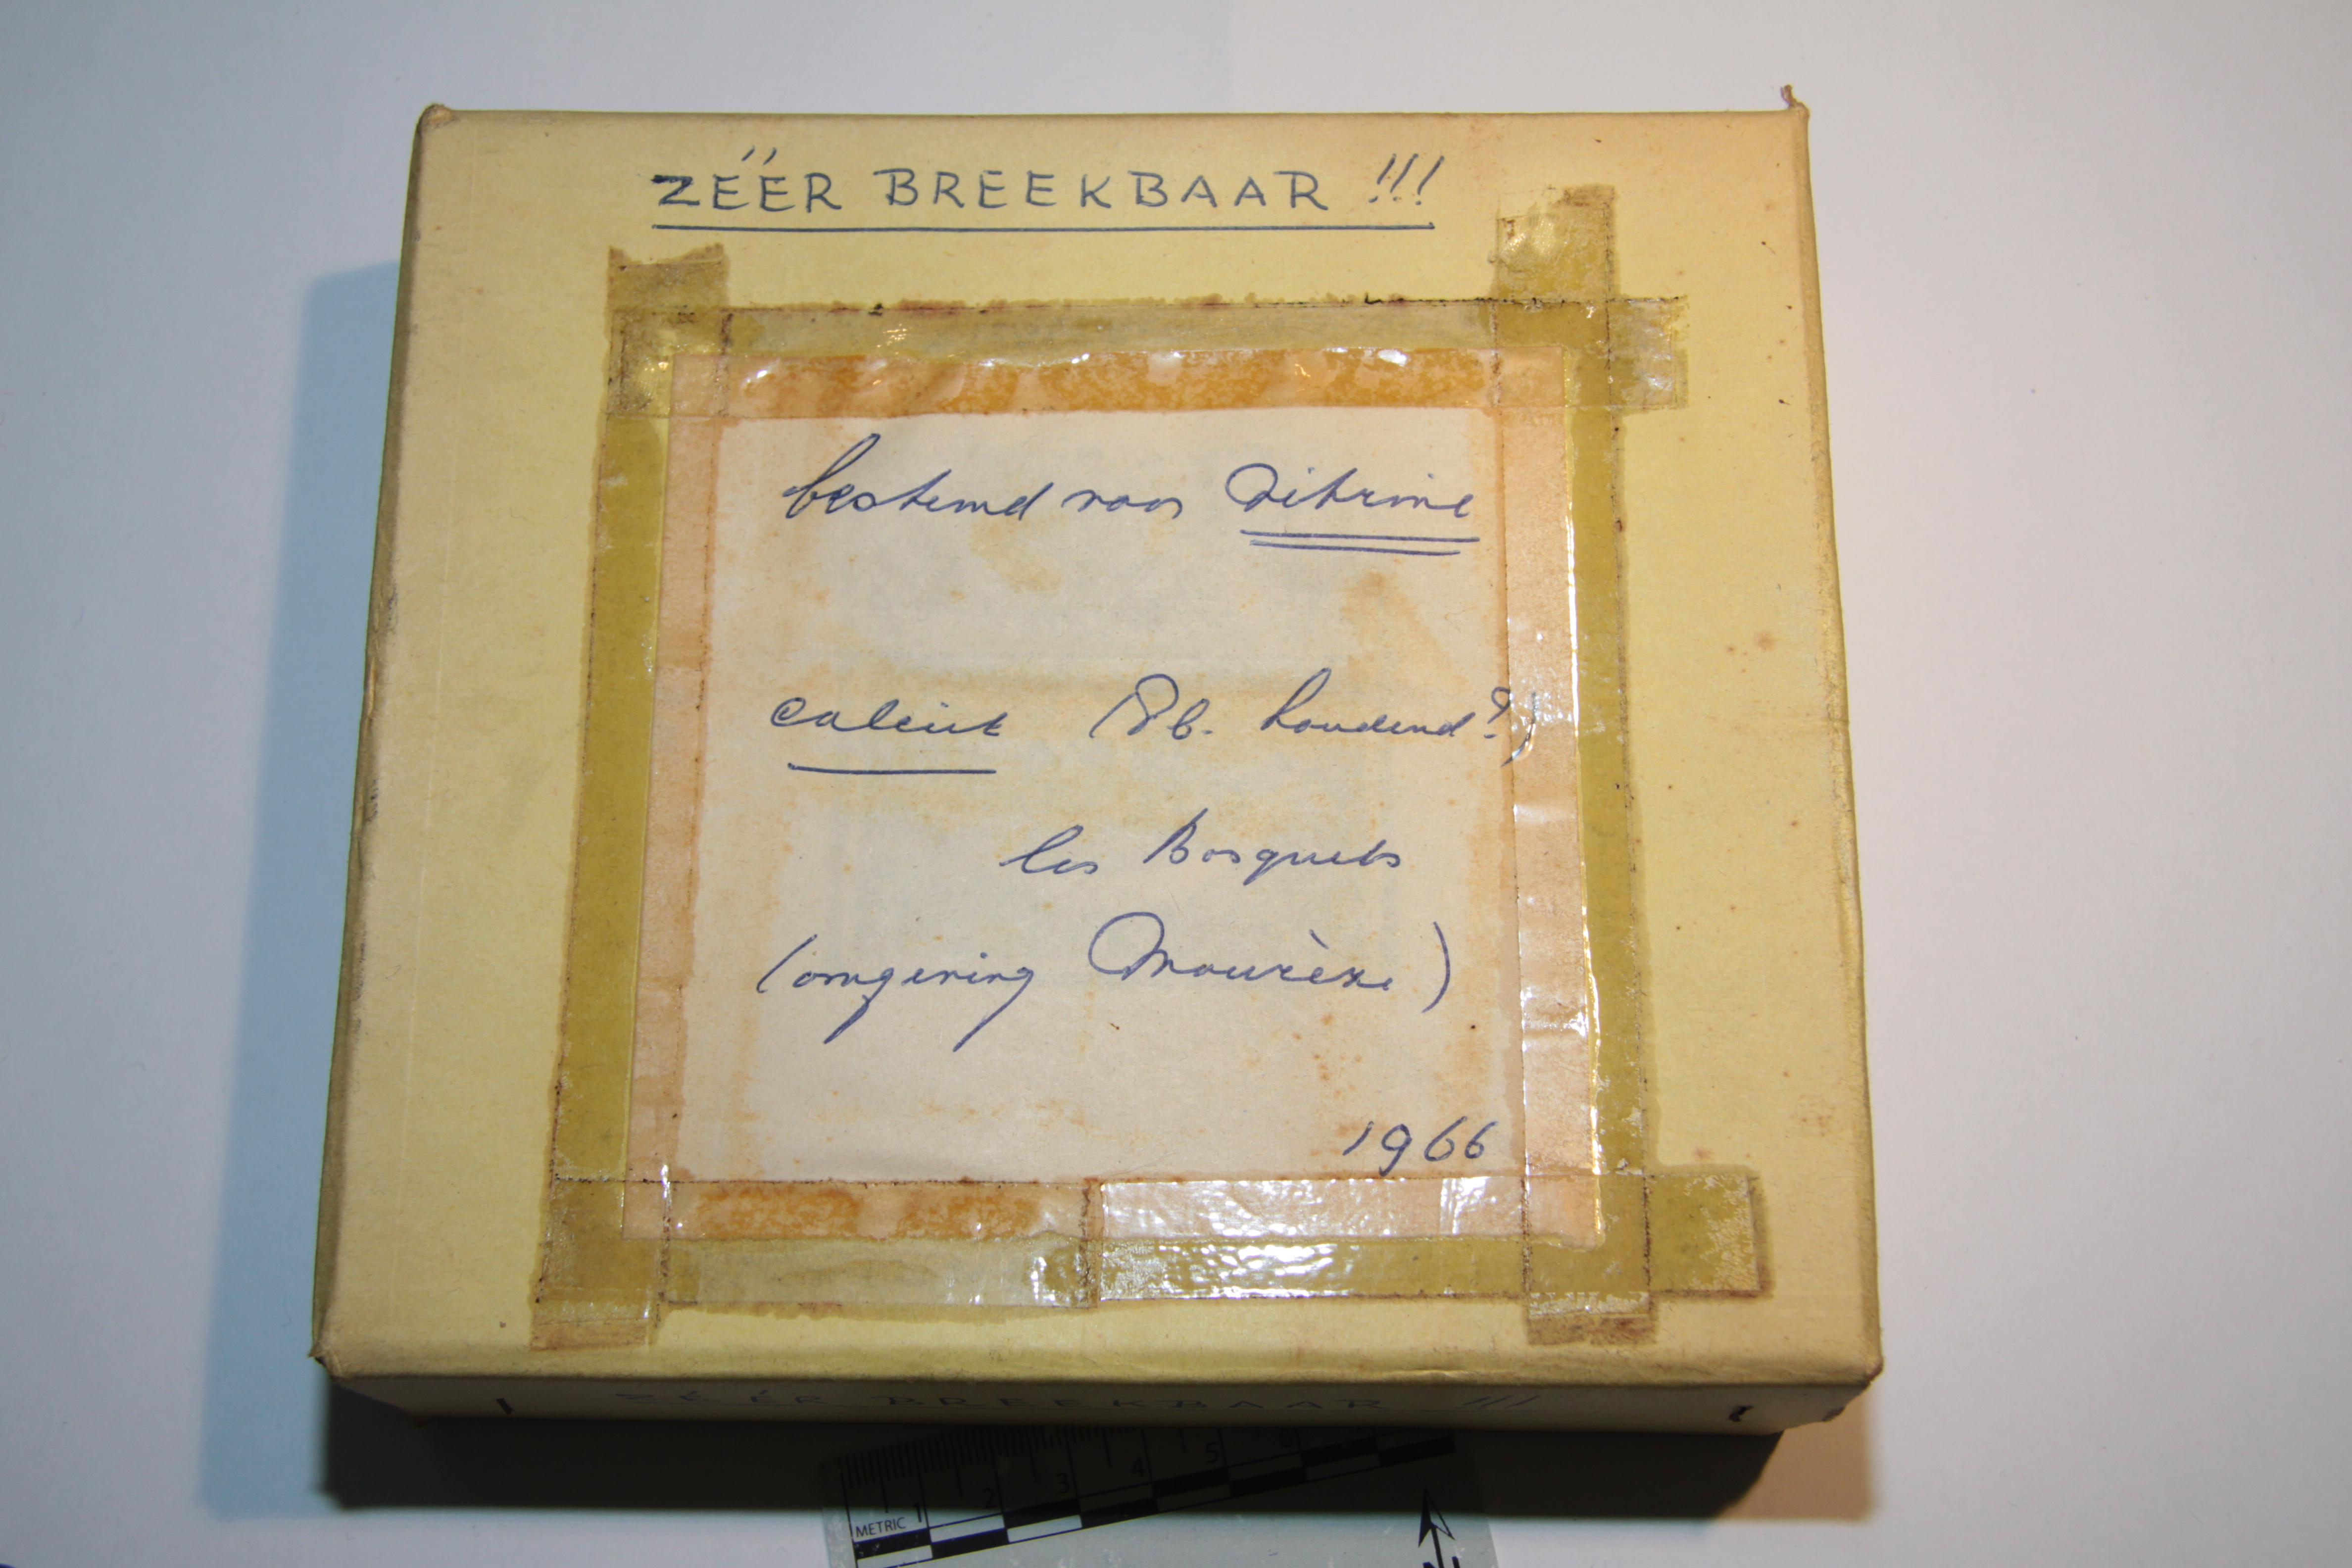 ZÉÉR BREEKBAAR !!!
bestemd voor Vitrine
calciet (Pb. houdend?)
les Bosquets
(omgeving Mourèze)
1966
ZÉÉR BREEKBAAR !!!
1 2 3 4 5 6
METRIC